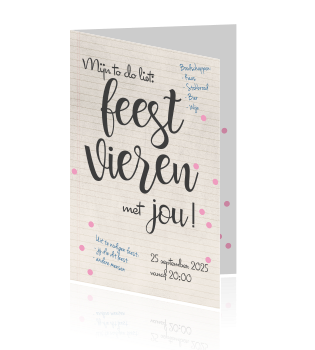 Mijn to do list:
Boodschappen
Kaas
- Stokbrood
- Bier
- Wijn
feest
vieren
met jou!
- jij die dit leest
- andere mensen
25 september 2025
vanaf 20:00